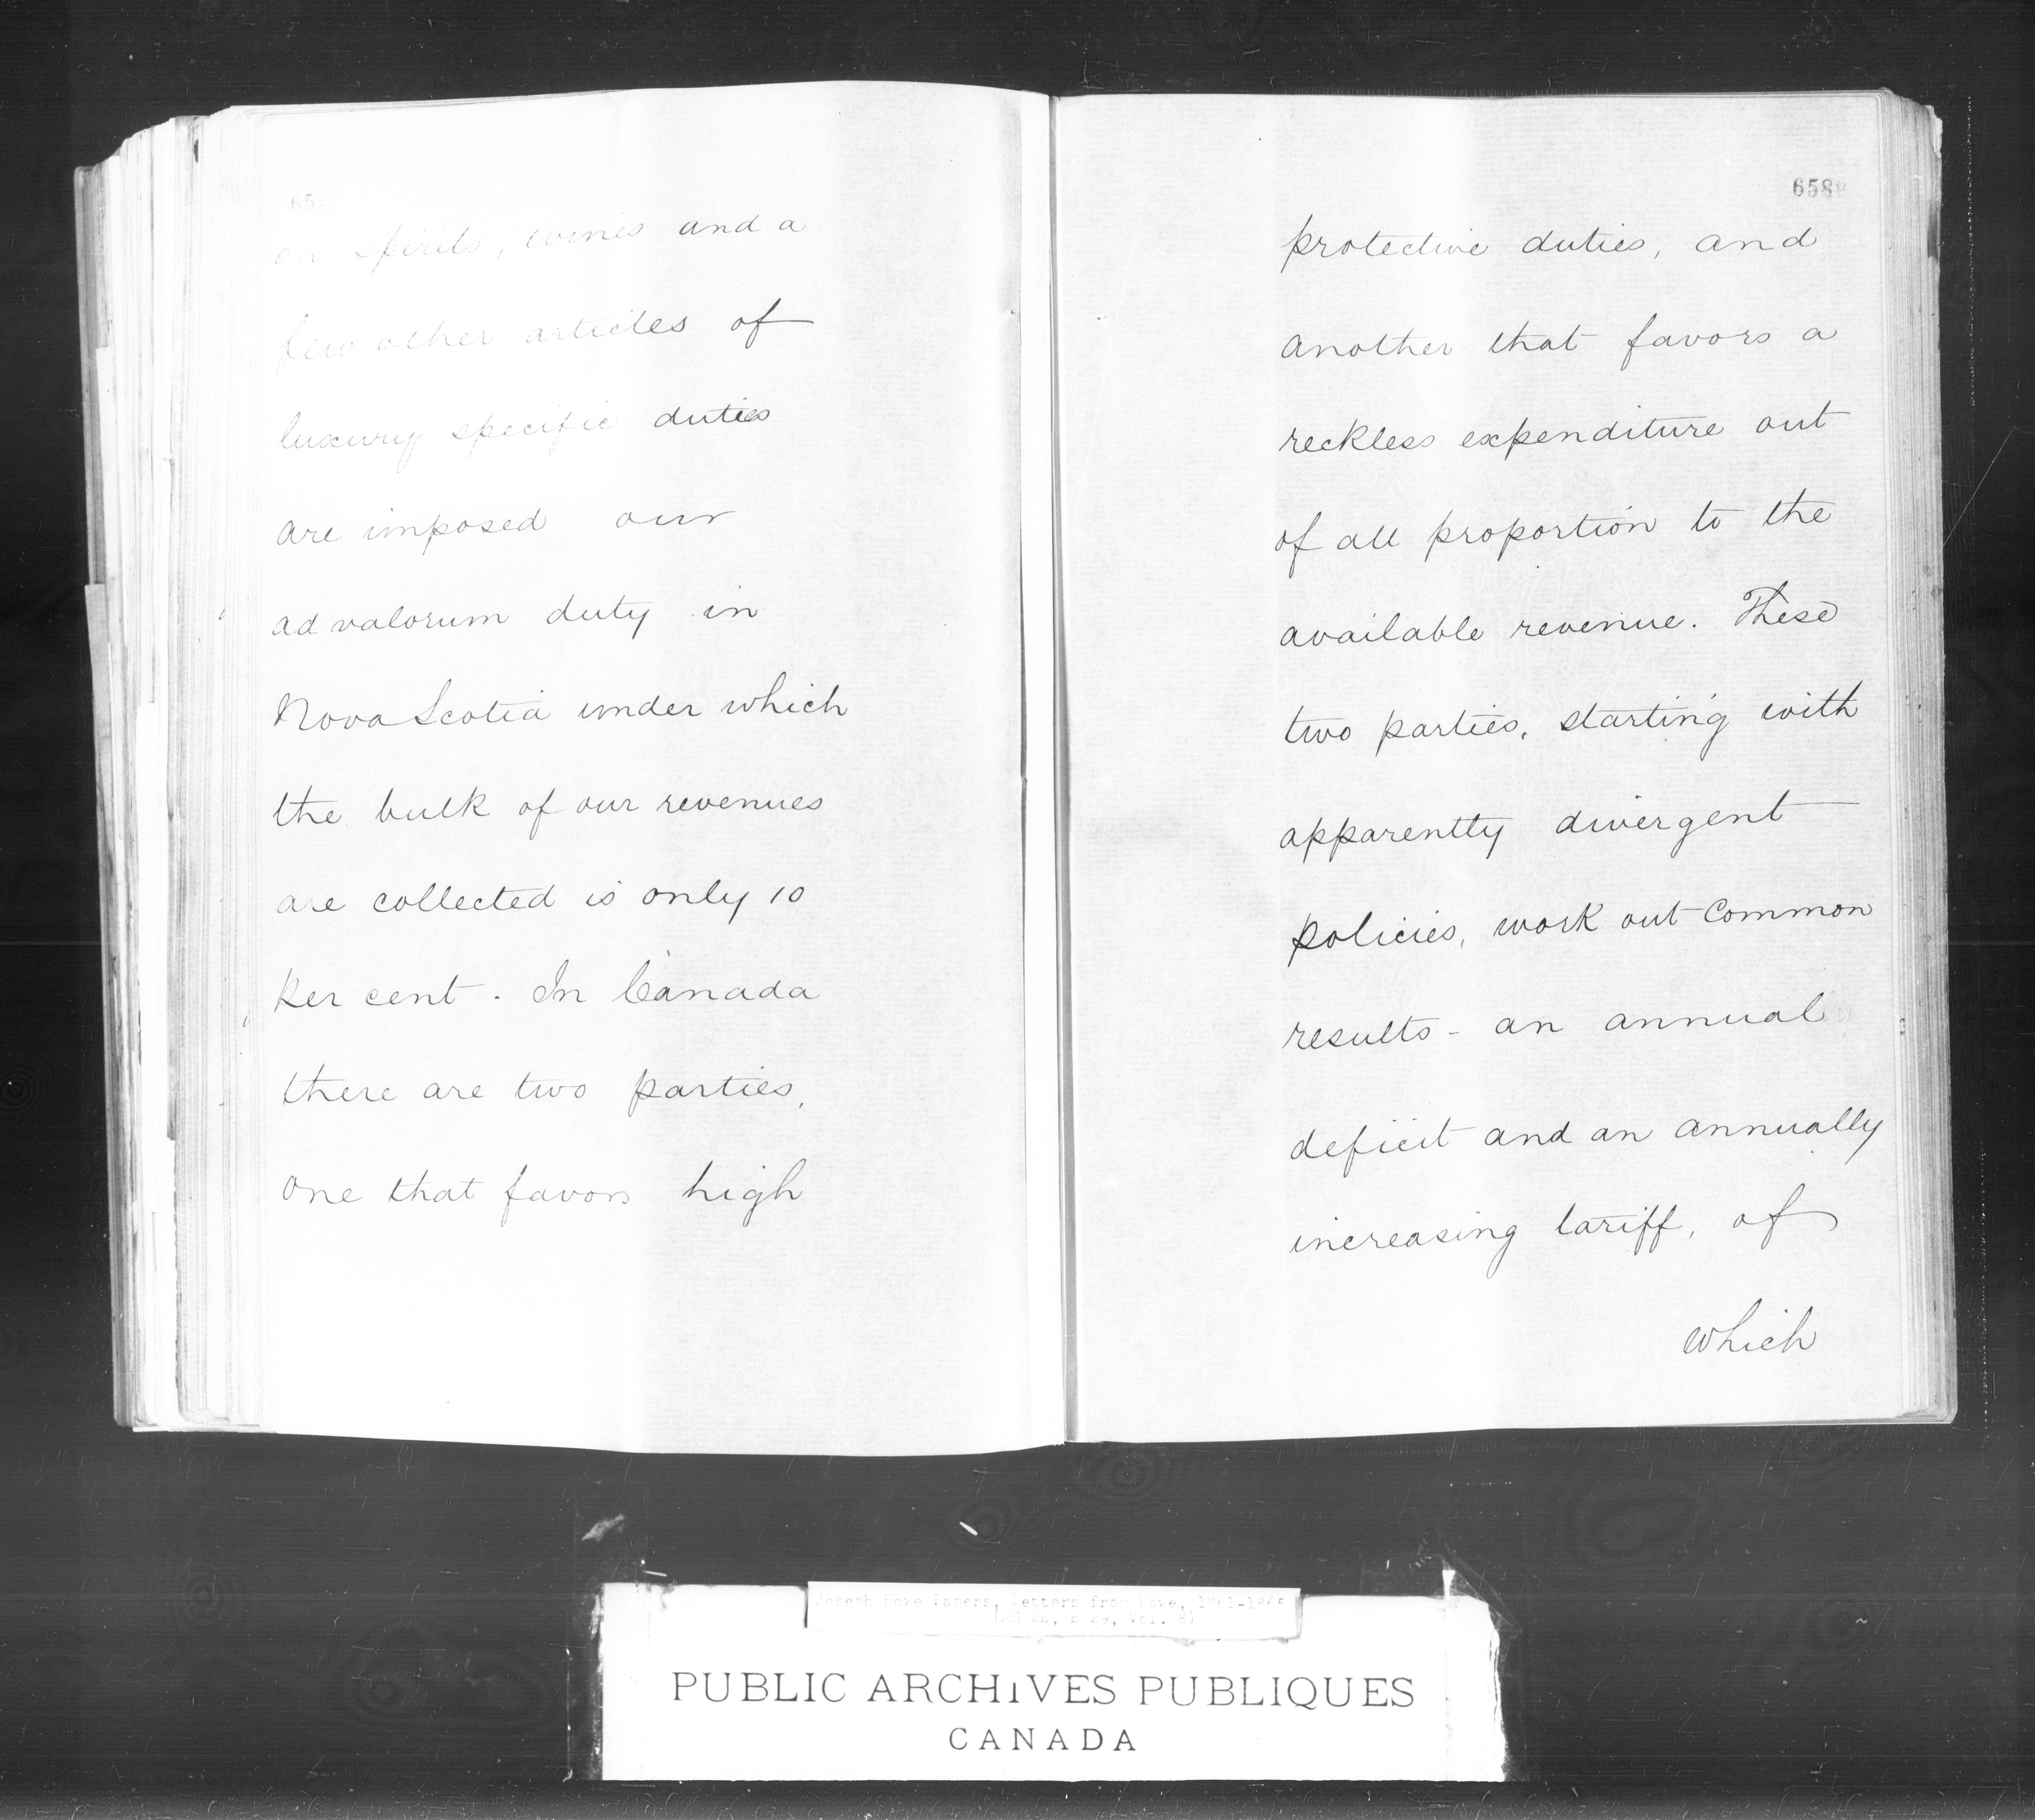 65
on spirits, wines and a
few other articles of
luxury specific duties
are imposed our
ad valorum duty in
Nova Scotia under which
the bulk of our revenues
are collected is only 10
per cent. In Canada
there are two parties,
one that favors high
658
protective duties, and
another that favors a
reckless expenditure out
of all proportion to the
available revenue. These
two parties, starting with
apparently divergent
policies, work out common
results - an annual
deficit and an annually
increasing tariff, of
which
Joseph Howe Papers, Letters from Howe, 1861-1865
(MG 24, B 29, Vol. 8)
PUBLIC ARCHIVES PUBLIQUES
CANADA